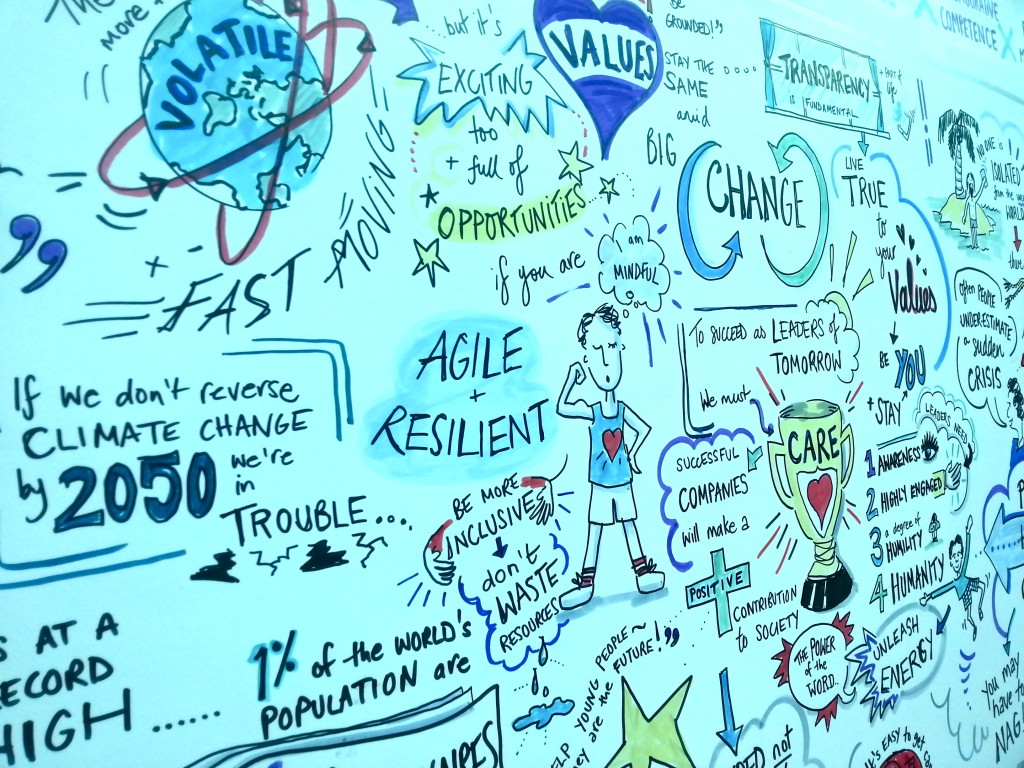 The
more +
VOLATILE
FAST
MOVING
...but it's
EXCITING
too
+ full of
OPPORTUNITIES
if you are
I am
MINDFUL
AGILE
+
RESILIENT
VALUES
BE
GROUNDED!"
STAY THE ....
SAME
amid
BIG
CHANGE
TRANSPARENCY
IS FUNDAMENTAL
LIVE
TRUE
to
your
Values
BE YOU
+ STAY
COMPETENCE
NO ONE is
ISOLATED
from the
WORLD
often PEOPLE
UNDERESTIMATE
a sudden
CRISIS
If we don't reverse
CLIMATE CHANGE
by 2050 we're
in
TROUBLE...
BE MORE
INCLUSIVE
don't
WASTE
RESOURCES
To SUCCEED as LEADERS of
TOMORROW
We must
CARE
SUCCESSFUL
COMPANIES
will make a
POSITIVE
CONTRIBUTION
to SOCIETY
LEADERS NEED
1 AWARENESS
2 HIGHLY ENGAGED
3 a degree of
HUMILITY
4 HUMANITY
THE POWER
of the
WORD...
UNLEASH
ENERGY
AT A
RECORD
HIGH ......
1% of the WORLD'S
POPULATION are
HELP YOUNG PEOPLE~
They are the FUTURE!"
not
You may
have to
It's EASY to get